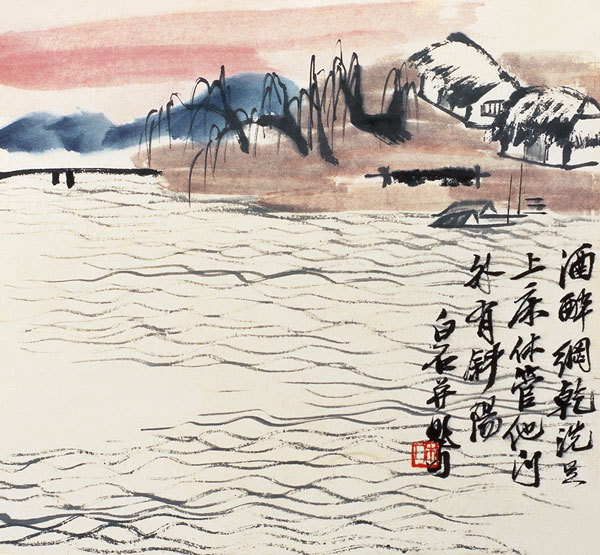 酒醉網乾洗足
上床休管他门
外有斜陽
白石并題句